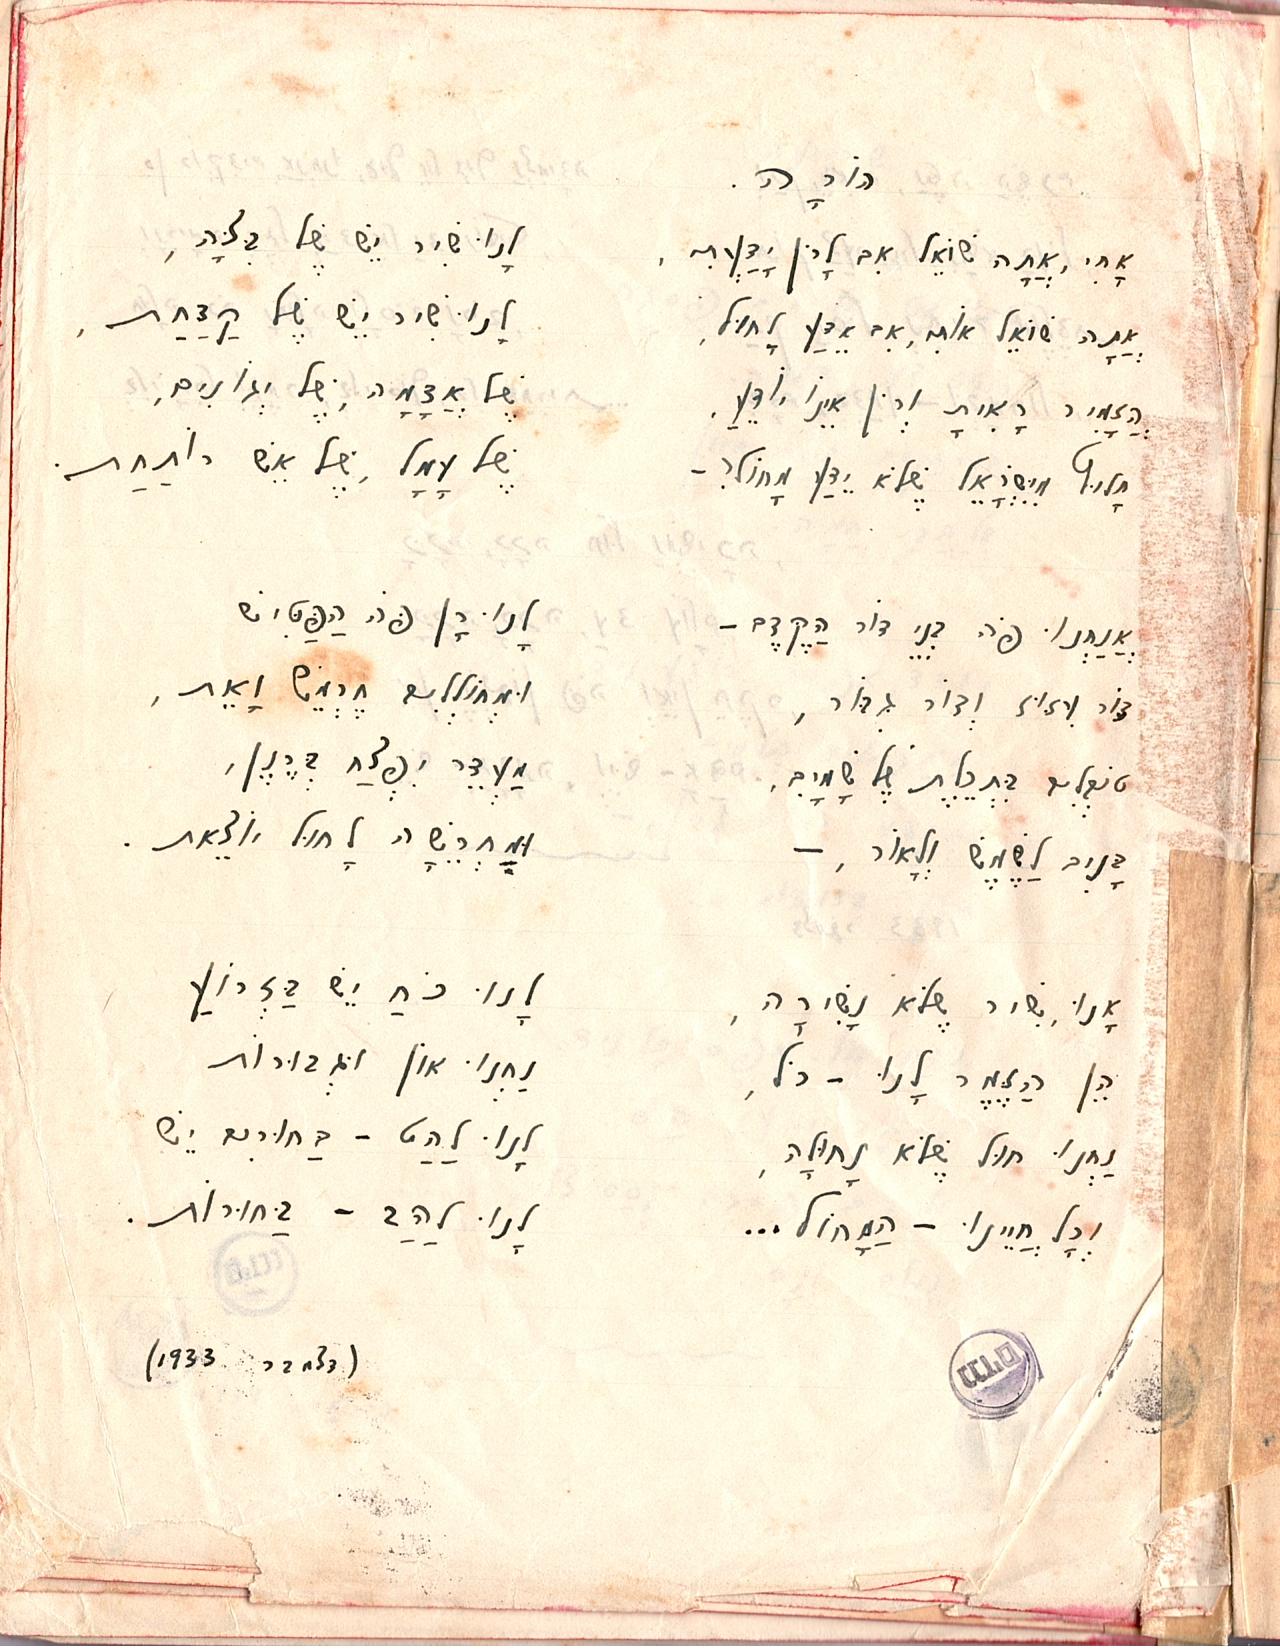 הוֹרָה.
אָחִי, אַתָּה שׁוֹאֵל אִם לָרֹן יָדַעְתִּי,
אַתָּה שׁוֹאֵל אוֹתִי, אִם אֵדַע לָחוּל,
הֲזָמִיר רָאִיתָ וְרֹן אֵינוֹ יוֹדֵעַ,
חָלוּץ מִיִּשְׂרָאֵל שֶׁלֹּא יֵדַע מָחוֹל? –
אֲנַחְנוּ פֹּה בְּנֵי דוֹר הַקֶּדֶם –
דּוֹר עִזּוּז וְדוֹר גִּבּוֹר,
טוֹבְלִים בִּתְכֵלֶת שֶׁל שָׁמַיִם,
בָּנִים לַשֶּׁמֶשׁ וְלָאוֹר, –
אָנוּ, שִׁיר שֶׁלֹּא נָשִׁירָה,
הֵן הַזֶּמֶר לָנוּ – כֹּל,
נַחְנוּ חוּל שֶׁלֹּא נָחוּלָה,
וְכָל חַיֵּינוּ – הַמָּחוֹל...
לָנוּ שִׁיר יֵשׁ שֶׁל בִּצָּה,
לָנוּ שִׁיר יֵשׁ שֶׁל קַדַּחַת,
שֶׁל אֲדָמָה, שֶׁל יְגוֹנִים,
שֶׁל עָמָל, שֶׁל אֵשׁ רוֹתַחַת.
לָנוּ רָן פֹּה הַפַּטִּישׁ
וּמְחוֹלְלִים חֶרְמֵשׁ וָאֵת,
מַעְדֵּר יִפְצַח בְּרֶנֶן,
וּמַחֲרֵשָׁה לָחוּל יוֹצֵאת.
לָנוּ כֹּחַ יֵשׁ בַּזְּרוֹעַ
נַחְנוּ אוֹן וּגְבוּרוֹת
לָנוּ לַהַט – בַּחוּרִים יֵשׁ
לָנוּ לַהַב – בַּחוּרוֹת.
(דצמבר 1933)